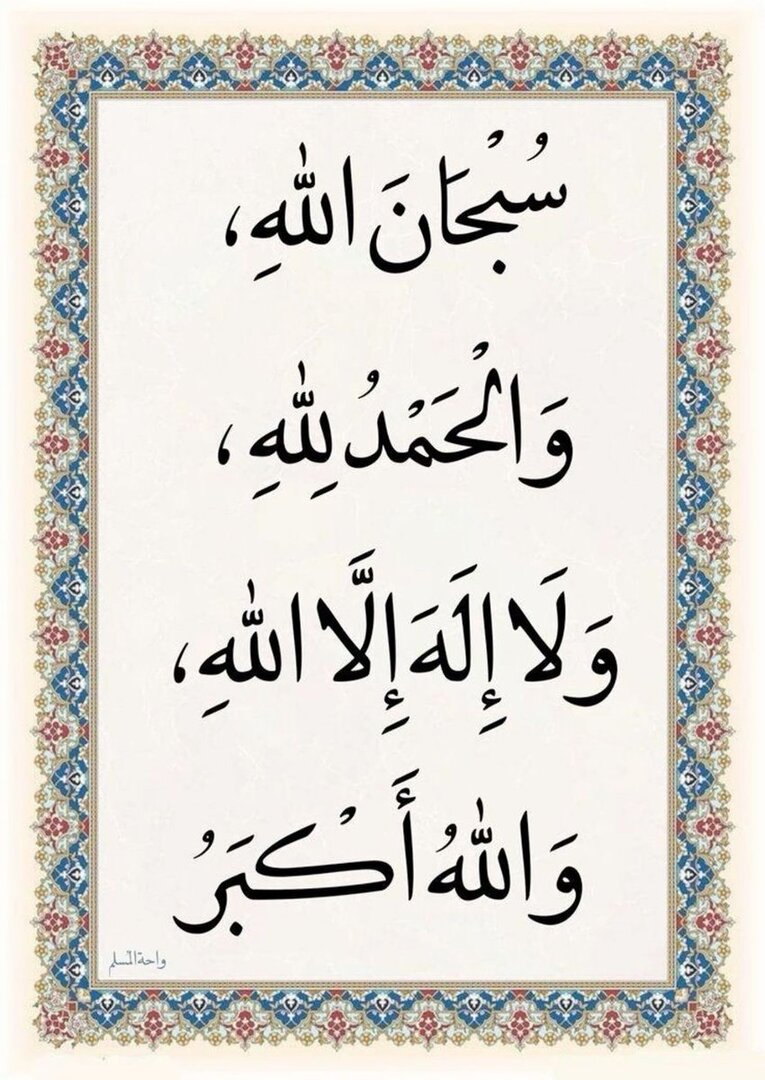 سُبْحَانَ اللهِ،
وَالْحَمْدُ لِلهِ،
وَلَا إِلَهَ إِلَّا اللهِ،
وَاللهُ أَكْبَرُ
واحة المسلم